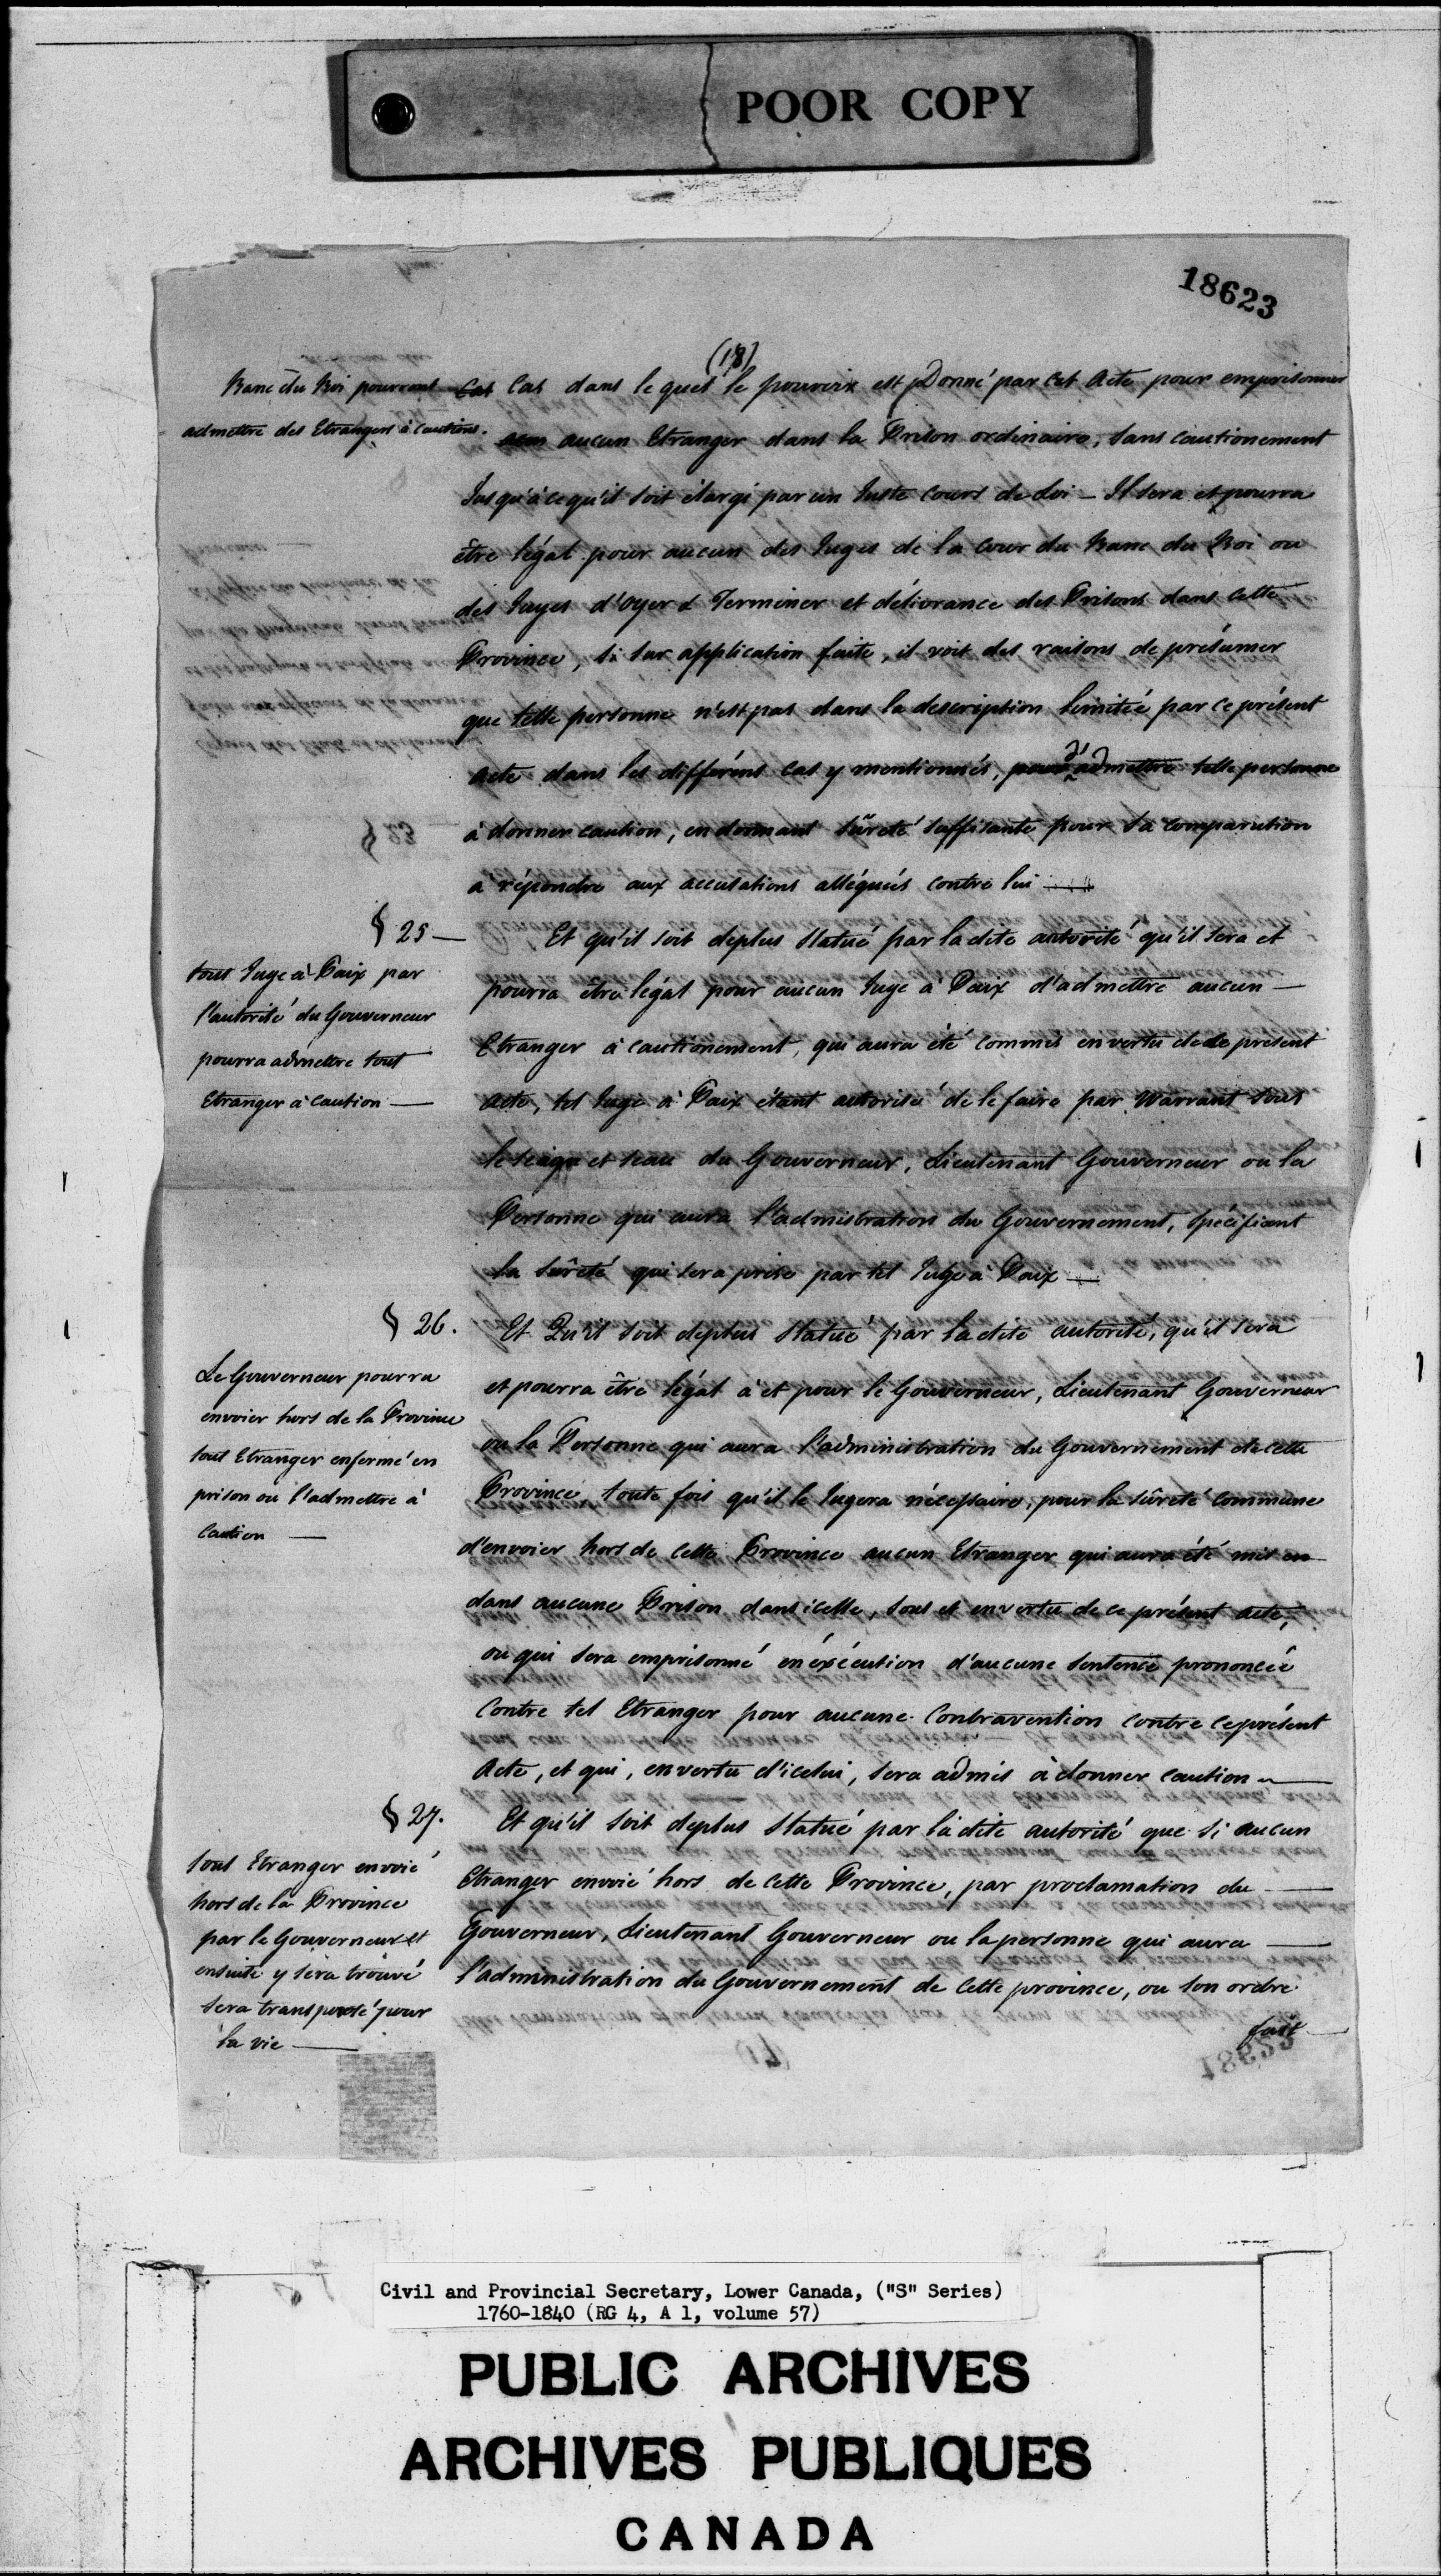 POOR COPY
18623
(18)
Banc du Roi pourront
admettre des Etrangers à cautions.
Cas Cas dans lequel le pouvoir est Donné par cet Acte pour emprisonner
aucun Etranger dans la Prison ordinaire, sans cautionement
Jusqu'à ce qu'il soit élargi par un Juste cours de Loi – Il sera et pourra
être légal pour aucun des Juges de la Cour du Banc du Roi ou
des Juges d'Oyer & Terminer et délivrance des Prisons dans cette
Province, si sur application faite, il voit des raisons de présumer
que telle personne n'est pas dans la description limitée par ce présent
Acte dans les différens cas y mentionnés, pour d'admettre telle personne
à donner caution, en donnant sûreté suffisante pour sa comparution
à répondre aux accusations alléguées contre lui —
§ 25 —
tout Juge à Paix par
l'autorité du Gouverneur
pourra admettre tout
Etranger à Caution —
Et qu'il soit deplus Statué par ladite autorité qu'il sera et
pourra être légal pour aucun Juge à Paix d'admettre aucun —
Etranger à cautionement, qui aura été commis en vertu de ce présent
Acte, tel Juge à Paix étant autorisé de le faire par Warrant sous
le seign et seau du Gouverneur, Lieutenant Gouverneur ou la
Personne qui aura l'admistration du Gouvernement, spécifiant
la sûreté qui sera prise par tel Juge à Paix —
§ 26.
Le Gouverneur pourra
envoier hors de la Province
tout Etranger enfermé en
prison ou l'admettre à
Caution —
Et Qu'il soit deplus Statué par ladite autorité, qu'il sera
et pourra être légal à et pour le Gouverneur, Lieutenant Gouverneur
ou la Personne qui aura l'administration du Gouvernement de cette
Province toute fois qu'il le Jugera nécessaire, pour la sûreté commune
d'envoier hors de cette Province aucun Etranger qui aura été mis en
dans aucune Prison dans icelle, sous et en vertu de ce présent acte,
ou qui sera emprisonné en éxécution d'aucune Sentence prononcée
Contre tel Etranger pour aucune Contravention contre ce présent
Acte, et qui, en vertu d'icelui, sera admis à donner caution —
§ 27.
tout Etranger envoié
hors de la Province
par le Gouverneur et
ensuite y sera trouvé
sera transporté pour
la vie —
Et qu'il soit deplus Statué par ladite autorité que si aucun
Etranger envoié hors de cette Province, par proclamation du —
Gouverneur, Lieutenant Gouverneur ou la personne qui aura —
l'administration du Gouvernement de cette province, ou son ordre
fait
Civil and Provincial Secretary, Lower Canada, ("S" Series)
1760-1840 (RG 4, A 1, volume 57)
PUBLIC ARCHIVES
ARCHIVES PUBLIQUES
CANADA